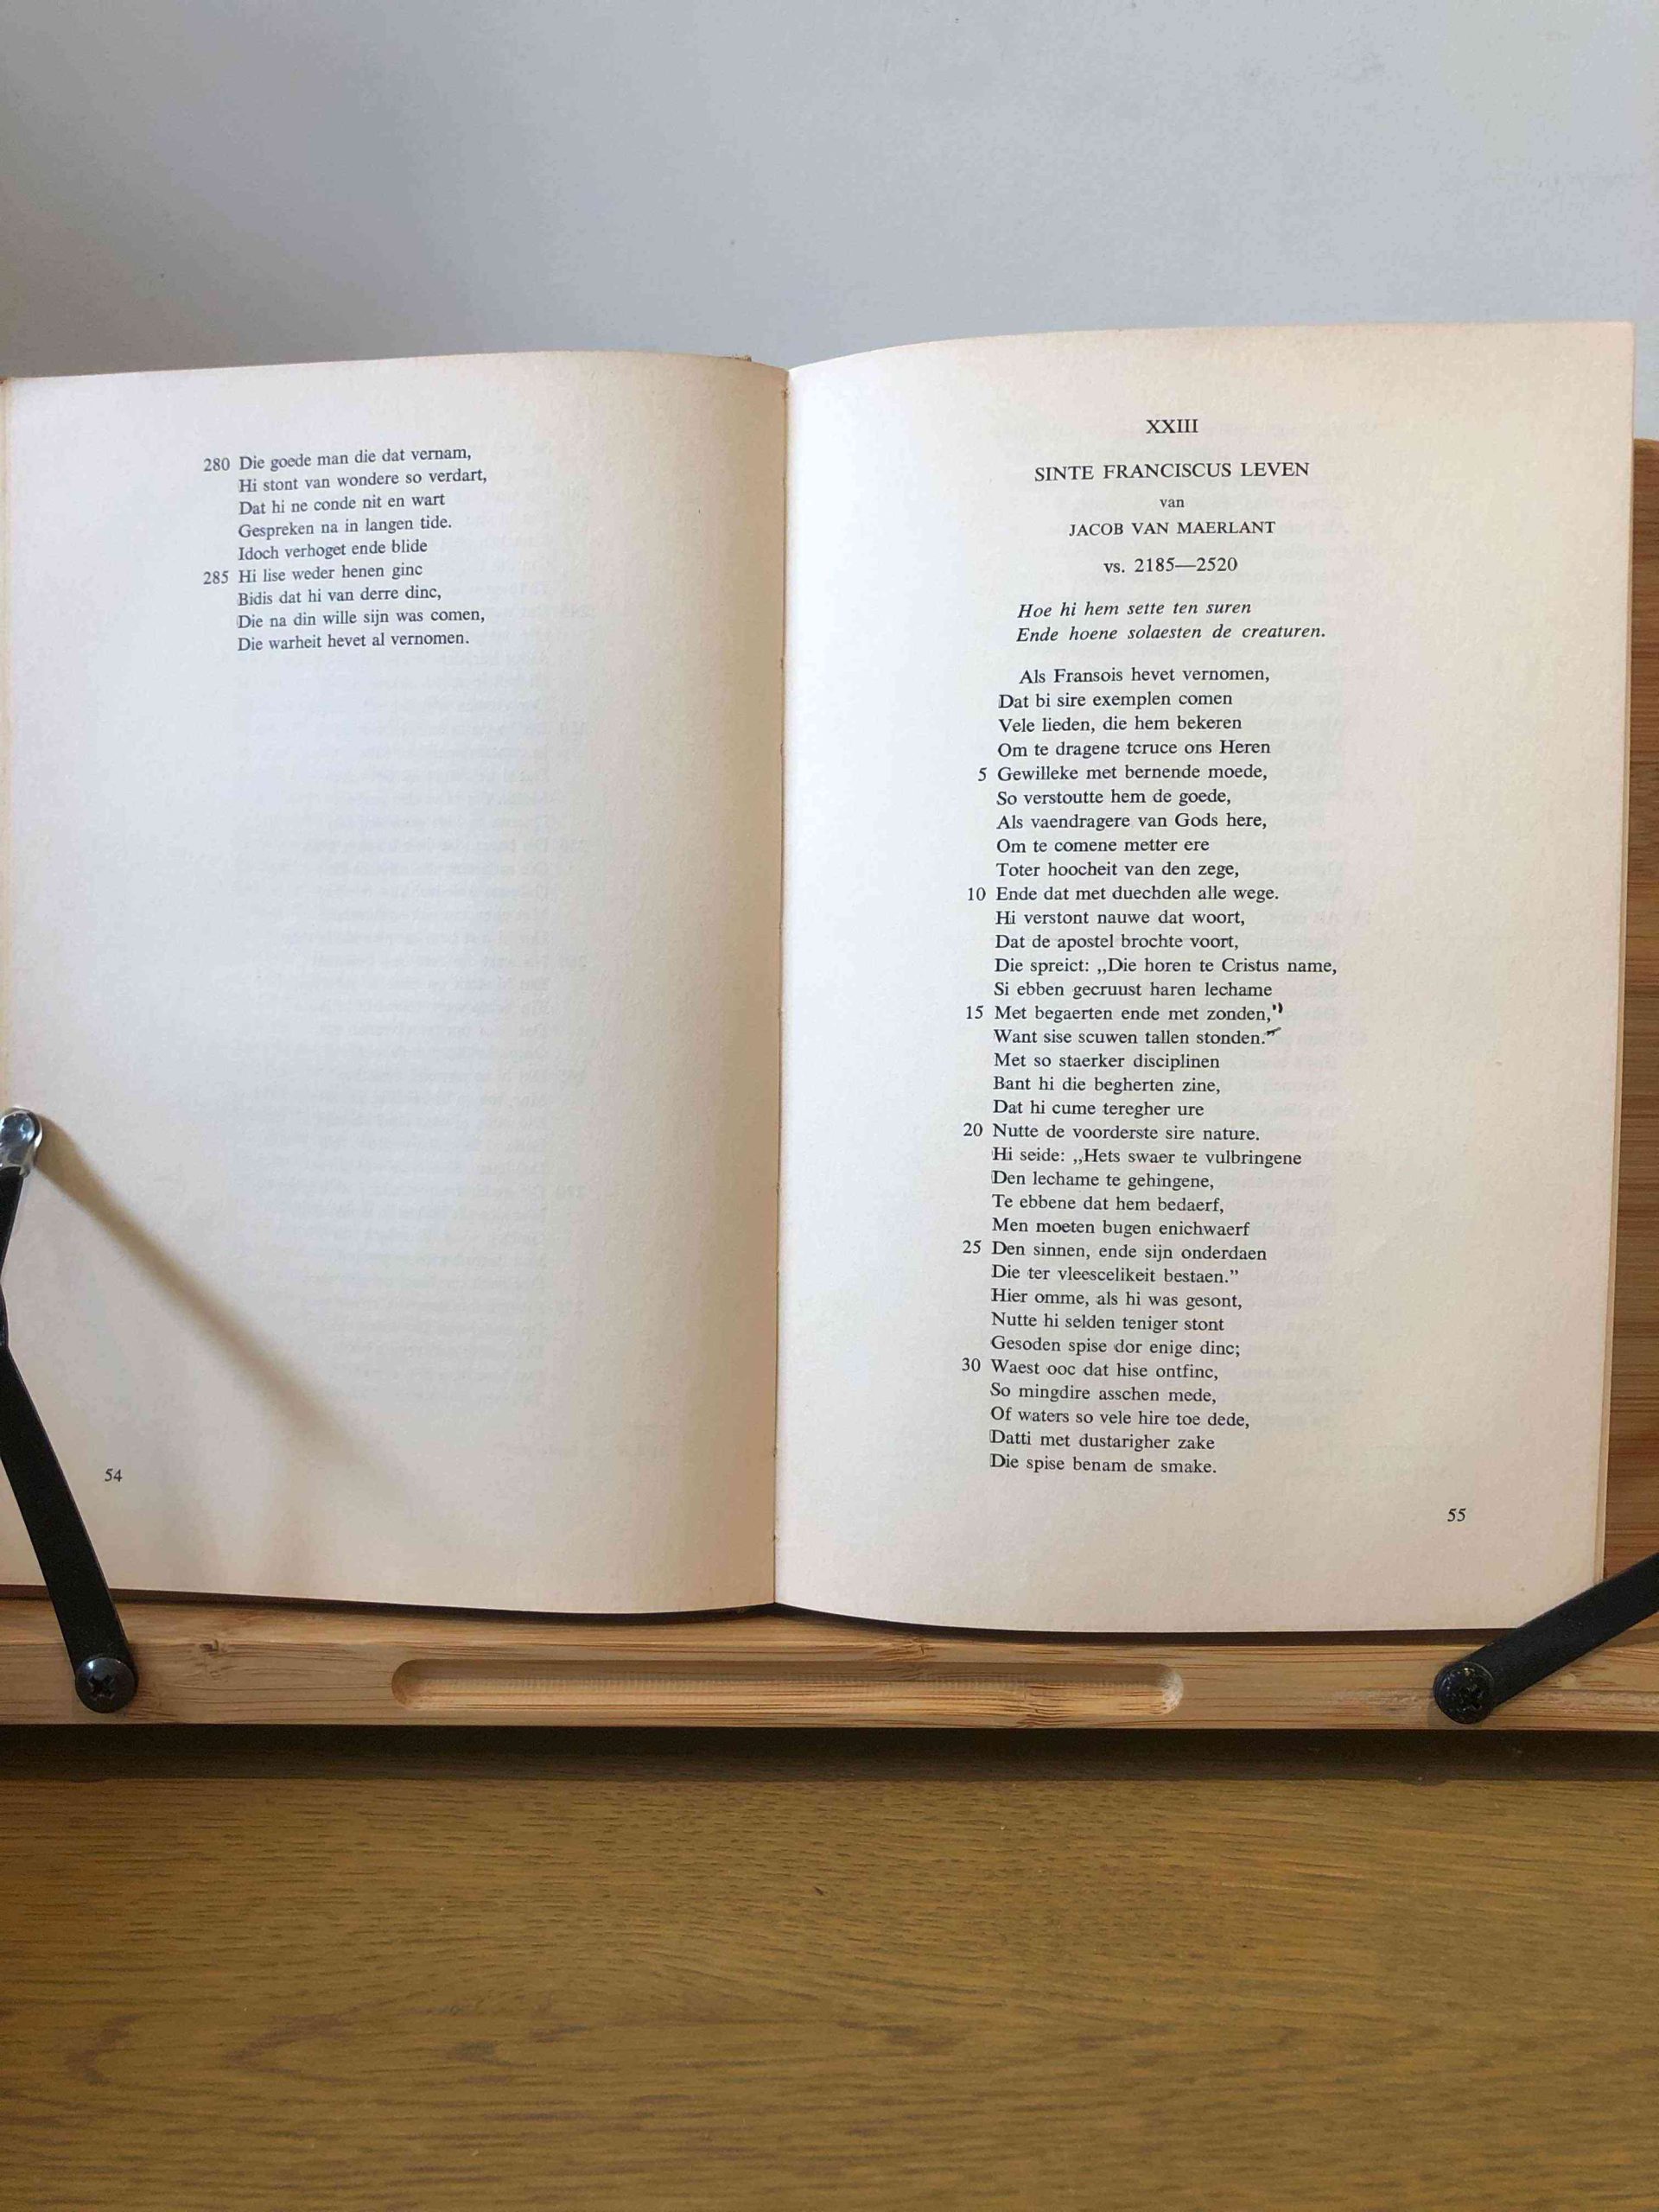 280 Die goede man die dat vernam,
Hi stont van wondere so verdart,
Dat hi ne conde nit en wart
Gespreken na in langen tide.
Idoch verhoget ende blide
285 Hi lise weder henen ginc
Bidis dat hi van derre dinc,
Die na din wille sijn was comen,
Die warheit hevet al vernomen.
54
XXIII
SINTE FRANCISCUS LEVEN
van
JACOB VAN MAERLANT
vs. 2185—2520
Hoe hi hem sette ten suren
Ende hoene solaesten de creaturen.
Als Fransois hevet vernomen,
Dat bi sire exemplen comen
Vele lieden, die hem bekeren
Om te dragene tcruce ons Heren
5 Gewilleke met bernende moede,
So verstoutte hem de goede,
Als vaendragere van Gods here,
Om te comene metter ere
Toter hoocheit van den zege,
10 Ende dat met duechden alle wege.
Hi verstont nauwe dat woort,
Dat de apostel brochte voort,
Die spreict: „Die horen te Cristus name,
Si ebben gecruust haren lechame
15 Met begaerten ende met zonden,”
Want sise scuwen tallen stonden.”
Met so staerker disciplinen
Bant hi die begherten zine,
Dat hi cume teregher ure
20 Nutte de voorderste sire nature.
Hi seide: „Hets swaer te vulbringene
Den lechame te gehingene,
Te ebbene dat hem bedaerf,
Men moeten bugen enichwaerf
25 Den sinnen, ende sijn onderdaen
Die ter vleescelikeit bestaen.”
Hier omme, als hi was gesont,
Nutte hi selden teniger stont
Gesoden spise dor enige dinc;
30 Waest ooc dat hise ontfinc,
So mingdire asschen mede,
Of waters so vele hire toe dede,
Datti met dustarigher zake
Die spise benam de smake.
55